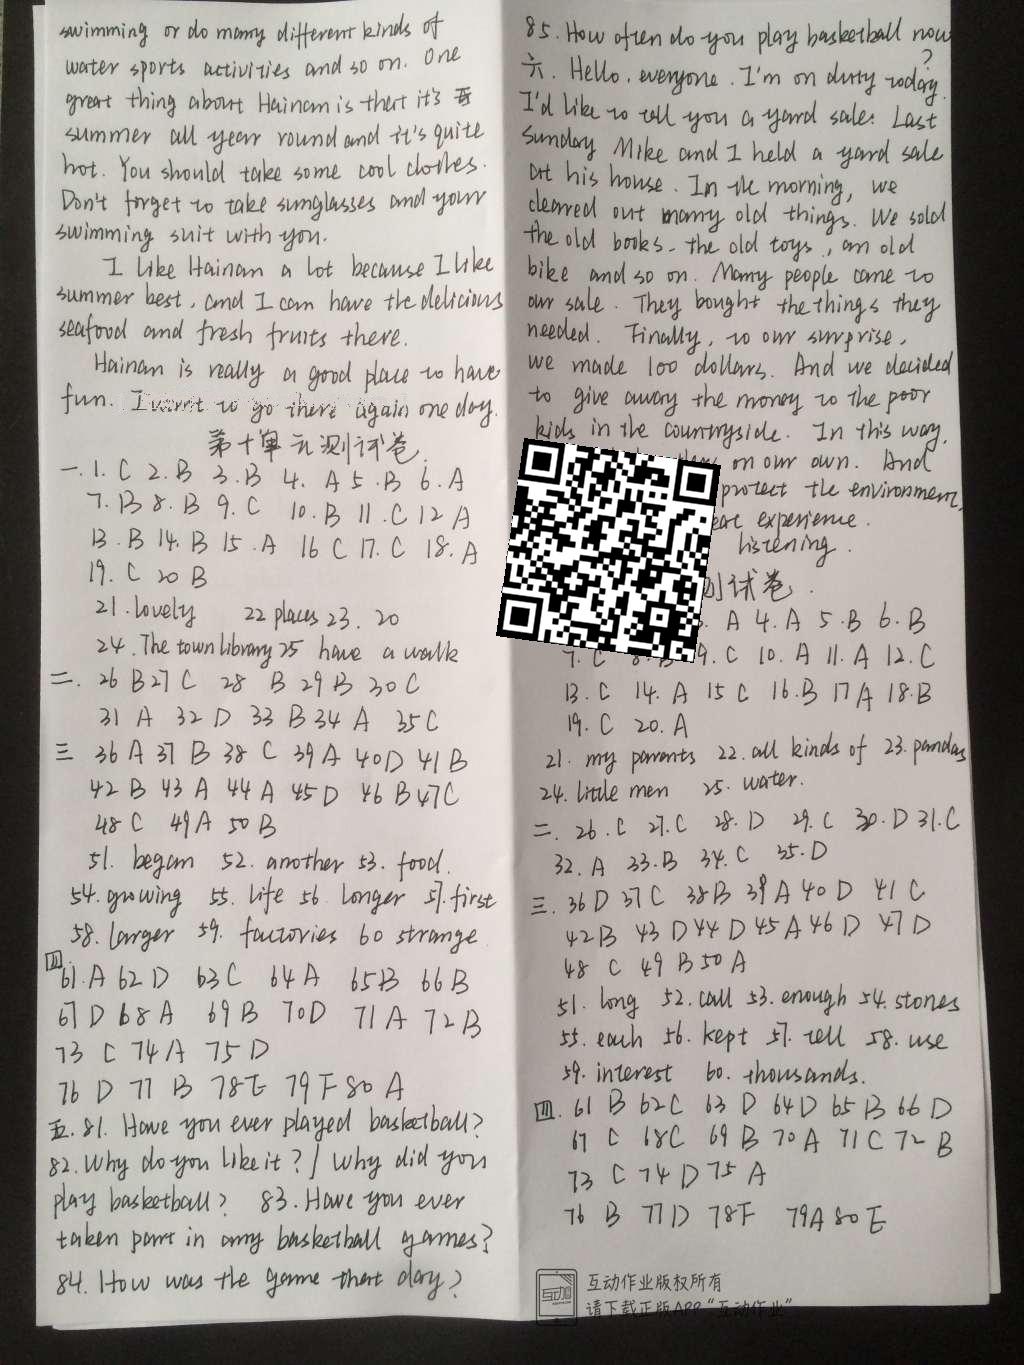 swimming or do many different kinds of
water sports activities and so on. One
great thing about Hainan is that it's
summer all year round and it's quite
hot. You should take some cool clothes.
Don't forget to take sunglasses and your
swimming suit with you.
I like Hainan a lot because I like
summer best, and I can have the delicious
seafood and fresh fruits there.
Hainan is really a good place to have
fun. I want to go there again one day.
第十单元测试卷
一.1. C 2. B 3. B 4. A 5. B 6. A
7. B 8. B 9. C 10. B 11. C 12 A
13. B 14. B 15. A 16 C 17. C 18. A
19. C 20 B
21. lovely 22 places 23. 20
24. The town library 25 have a walk
二. 26 B 27 C 28 B 29 B 30 C
31 A 32 D 33 B 34 A 35 C
三 36 A 37 B 38 C 39 A 40 D 41 B
42 B 43 A 44 A 45 D 46 B 47 C
48 C 49 A 50 B
51. began 52. another 53. food.
54. growing 55. life 56 longer 57. first
58. larger 59. factories 60 strange
四
61. A 62 D 63 C 64 A 65 B 66 B
67 D 68 A 69 B 70 D 71 A 72 B
73 C 74 A 75 D
76 D 77 B 78 E 79 F 80 A
五. 81. Have you ever played basketball?
82. Why do you like it? / Why did you
play basketball? 83. Have you ever
taken part in any basketball games?
84. How was the game that day?
85. How often do you play basketball now
?
六. Hello, everyone. I'm on duty today.
I'd like to tell you a yard sale. Last
Sunday Mike and I held a yard sale
at his house. In the morning, we
cleared out many old things. We sold
the old books, the old toys, an old
bike and so on. Many people came to
our sale. They bought the things they
needed. Finally, to our surprise,
we made 100 dollars. And we decided
to give away the money to the poor
kids in the countryside. In this way,
on our own. And
protect the environment,
experience.
listening.
测试卷.
A 4. A 5. B 6. B
7. C 8. B 9. C 10. A 11. A 12. C
13. C 14. A 15 C 16. B 17 A 18. B
19. C 20. A
21. my parents 22. all kinds of 23. pandas
24. little men 25. water.
二. 26. C 27. C 28. D 29. C 30. D 31. C
32. A 33. B 34. C 35. D
三. 36 D 37 C 38 B 39 A 40 D 41 C
42 B 43 D 44 D 45 A 46 D 47 D
48 C 49 B 50 A
51. long 52. call 53. enough 54. stones
55. each 56. kept 57. tell 58. use
59. interest 60. thousands.
四. 61 B 62 C 63 D 64 D 65 B 66 D
67 C 68 C 69 B 70 A 71 C 72 B
73 C 74 D 75 A
76 B 77 D 78 F 79 A 80 E
互动作业版权所有
请下载正版APP“互动作业”